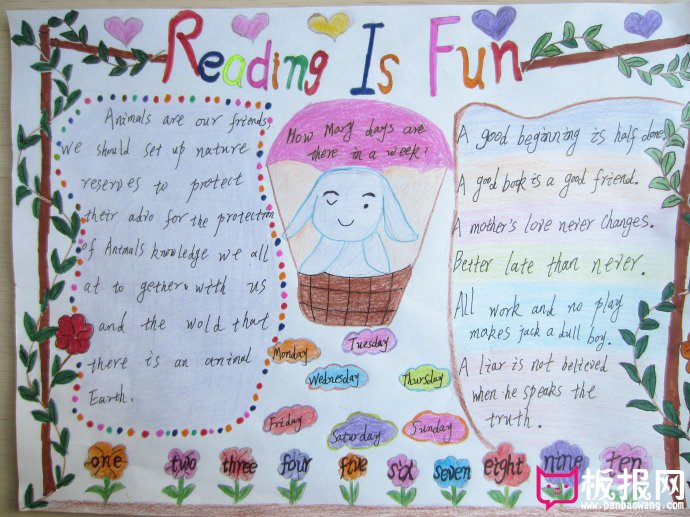 Reading Is Fun
Animals are our friends,
we should set up nature
reserves to protect
their advo for the protection
of Animals knowledge we all
at to gether with us
and the wold that
there is an animal
Earth.
How Many days are
there in a week?
Monday
Tuesday
Wednesday
Thursday
Friday
Saturday
Sunday
A good beginning is half done.
A good book is a good friend.
A mother's love never changes.
Better late than never.
All work and no play
makes jack a dull boy.
A liar is not believed
when he speaks the
truth.
one two three four five six seven eight nine ten
板报网
www.banbaowang.com